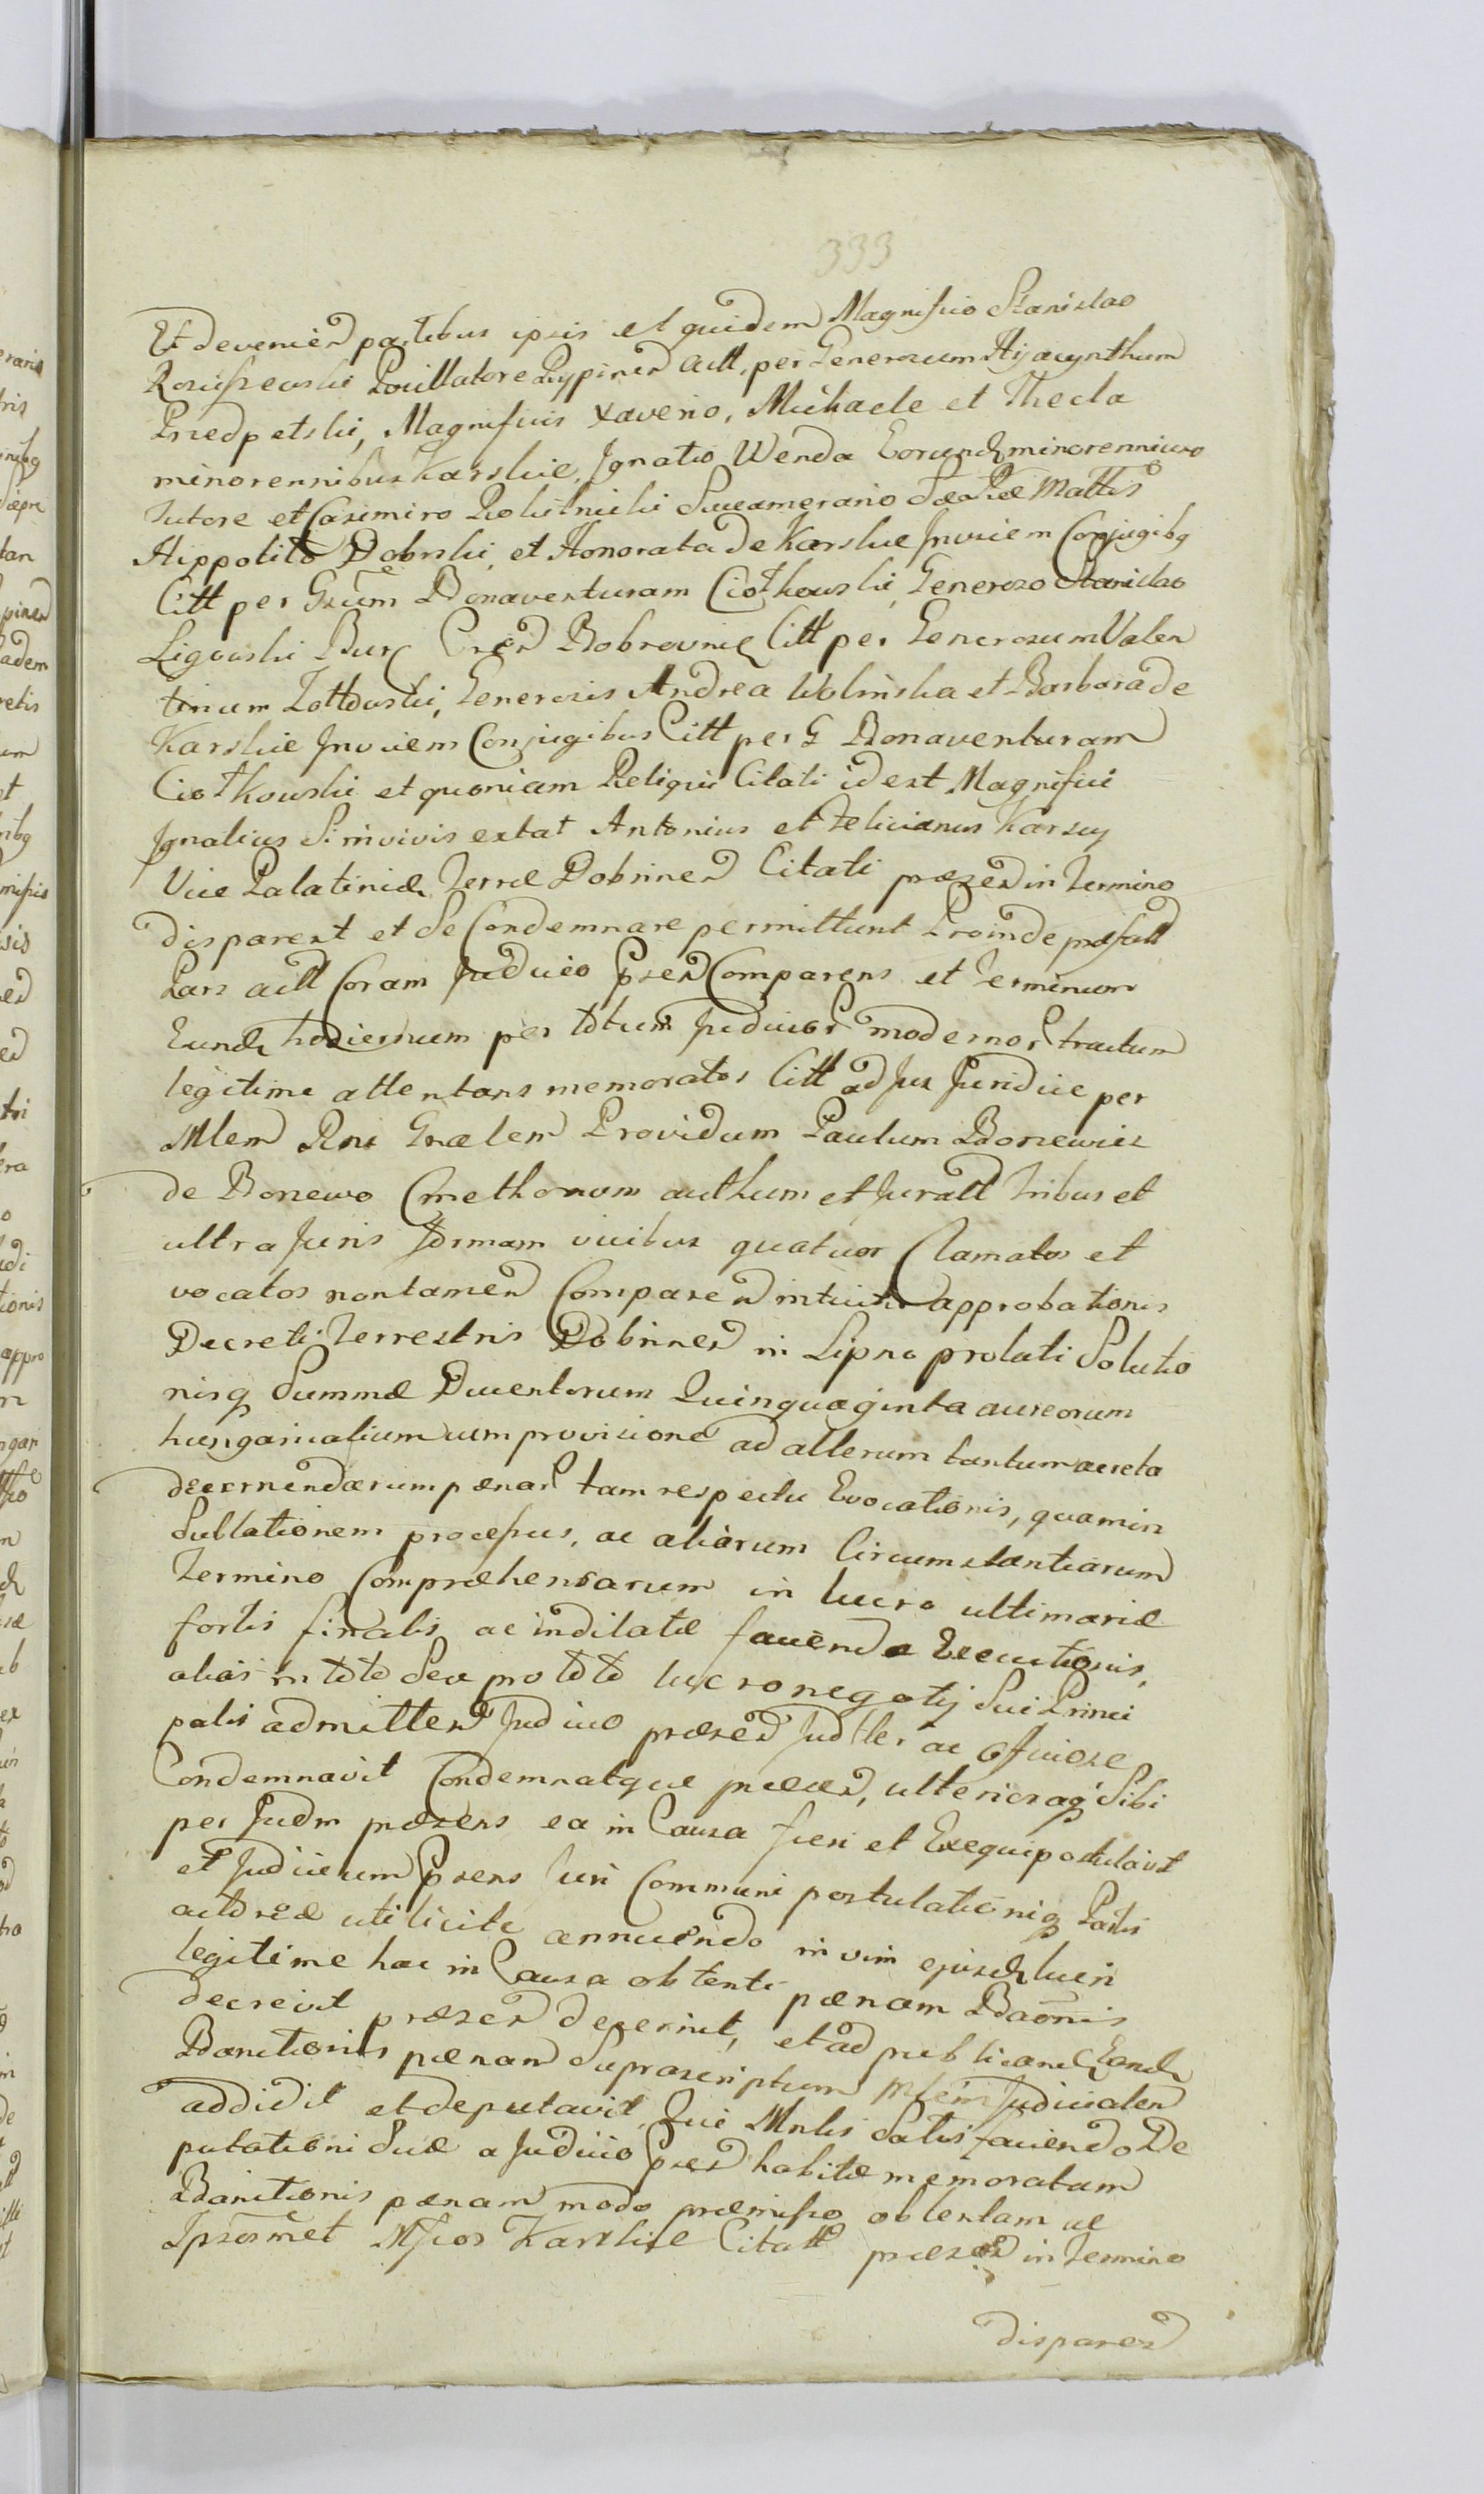 333
Et devenien partibus ipsis et quidem Magnifico Stanislao
Rosciszewski Pocillatore Rypinen Actt, per Generosum Hyacynthum
Przedpelski, Magnificis Xaverio, Michaele et Thecla
minorennibus Karskie, Ignatio Wenda Eorund minorennium
tutore et Casimiro Rokitnicki Succamerario Sae Rae Mattis
Hippolito Dobrski, et Honorata de Karskie Invicem Conjugibg
Citt per Gsum Bonaventuram Ciotkowski, Generoso Stanislao
Ligowski Burg Cren Bobrovnic Citt per Generosum Valen
tinum Zottowski, Generosis Andrea Wolinska et Barbara de
Karskie Invicem Conjugibus Citt per G Bonaventuram
Ciotkowski et quoniam Reliqui Citati id est Magnifici
Ignatius Si in vivis extat Antonius et Felicianus Karscy
Vice Palatinidae Terrae Dobrinen Citati praesen in Termino
disparent et se Condemnare permittunt Proinde praefatt
Pars actt Coram Judicio Psen Comparens et Terminum
Eund hodiernum per totum Judicior modernor tractum
legitime attentans memoratos Citt ad Jus Juridice per
Mlem Rni Gnalem Providum Paulum Boniewicz
de Boniewo Cmethonem authum et Juratt tribus et
ultra Juris formam vicibus quatuor Clamatos et
vocatos non tamen Comparen intuitu approbationis
Decreti Terrestris Dobrinen in Lipno prolati Solutio
nisq Summae Ducentorum Quinquaginta aureorum
hungaricalium cum provisione ad alterum tantum accreta
decernendarum paenar tam respectu Evocationis, quam in
Sublationem processus, ac aliarum Circumstantiarum
Termino Compraehensarum in lucro ultimariae
fortis finalis ac indilatae faciendae Executionis,
alias in toto Seu pro toto lucro negotij Sui Princi
palis admitten Judicio praesen Judtler ac officiose
Condemnavit Condemnatque praesen, ulterioraq Sibi
per Judm praesens ea in Causa fieri et Exequi postulavit
et Judicium Psens Juri Communi postulationiq Partis
actoreae uti licitae annuendo in vim ejusd lucri
legitime hac in Causa obtenti paenam Baonis
decrevit praesen decernit, et ad publicand Eand
Banitionis paenam Suprascriptum Mlem Judicialem
addidit et deputavit, Qui Mnlis Satisfaciendo De
putationi Suae a Judicio Psen habitae memoratam
Banitionis paenam modo praemisso obtentam ac
Ipsosmet Mfcos Karskie Citatt praesen in Termino
disparen